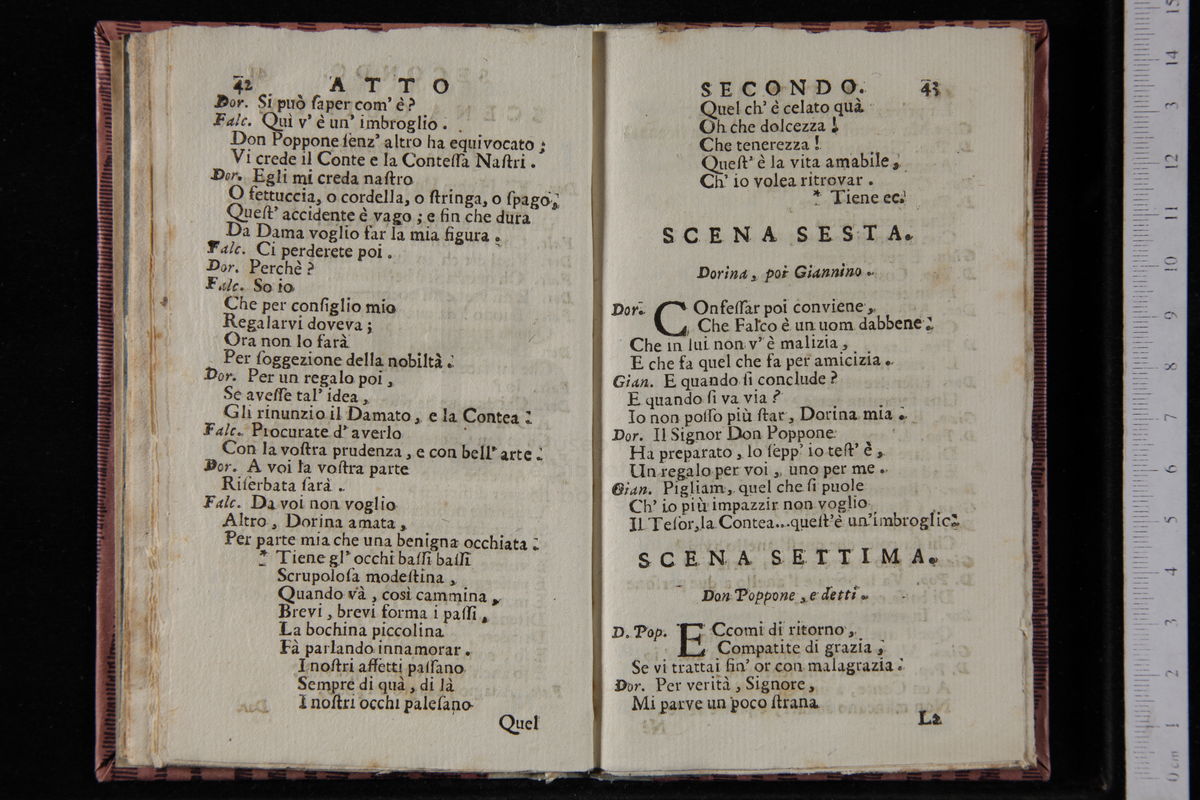 42 ATTO
Dor. Si può ſaper com' è?
Falc. Quì v' è un' imbroglio.
Don Poppone ſenz' altro ha equivocato;
Vi crede il Conte e la Conteſſa Naſtri.
Dor. Egli mi creda naſtro
O fettuccia, o cordella, o ſtringa, o ſpago,
Queſt' accidente è vago; e ſin che dura
Da Dama voglio far la mia figura.
Falc. Ci perderete poi.
Dor. Perchè?
Falc. So io
Che per conſiglio mio
Regalarvi doveva;
Ora non lo farà
Per ſoggezione della nobiltà.
Dor. Per un regalo poi,
Se aveſſe tal' idea,
Gli rinunzio il Damato, e la Contea.
Falc. Procurate d' averlo
Con la voſtra prudenza, e con bell' arte.
Dor. A voi la voſtra parte
Riſerbata ſarà.
Falc. Da voi non voglio
Altro, Dorina amata,
Per parte mia che una benigna occhiata.
* Tiene gl' occhi baſſi baſſi
Scrupoloſa modeſtina,
Quando và, così cammina,
Brevi, brevi forma i paſſi,
La bochina piccolina
Fà parlando innamorar.
I noſtri affetti paſſano
Sempre di quà, di là
I noſtri occhi paleſano
Quel
SECONDO. 43
Quel ch' è celato quà
Oh che dolcezza!
Che tenerezza!
Queſt' è la vita amabile,
Ch' io volea ritrovar.
* Tiene ec.
SCENA SESTA.
Dorina, poi Giannino.
Dor. COnfeſſar poi conviene,
Che Falco è un uom dabbene:
Che in lui non v' è malizia,
E che fa quel che fa per amicizia.
Gian. E quando ſi conclude?
E quando ſi va via?
Io non poſſo più ſtar, Dorina mia.
Dor. Il Signor Don Poppone
Ha preparato, lo ſepp' io teſt' è,
Un regalo per voi, uno per me.
Gian. Pigliam, quel che ſi puole
Ch' io più impazzir non voglio
Il Teſor, la Contea...queſt'è un'imbroglio.
SCENA SETTIMA.
Don Poppone, e detti.
D. Pop. ECcomi di ritorno,
Compatite di grazia,
Se vi trattai ſin' or con malagrazia.
Dor. Per verità, Signore,
Mi parve un poco ſtrana
La